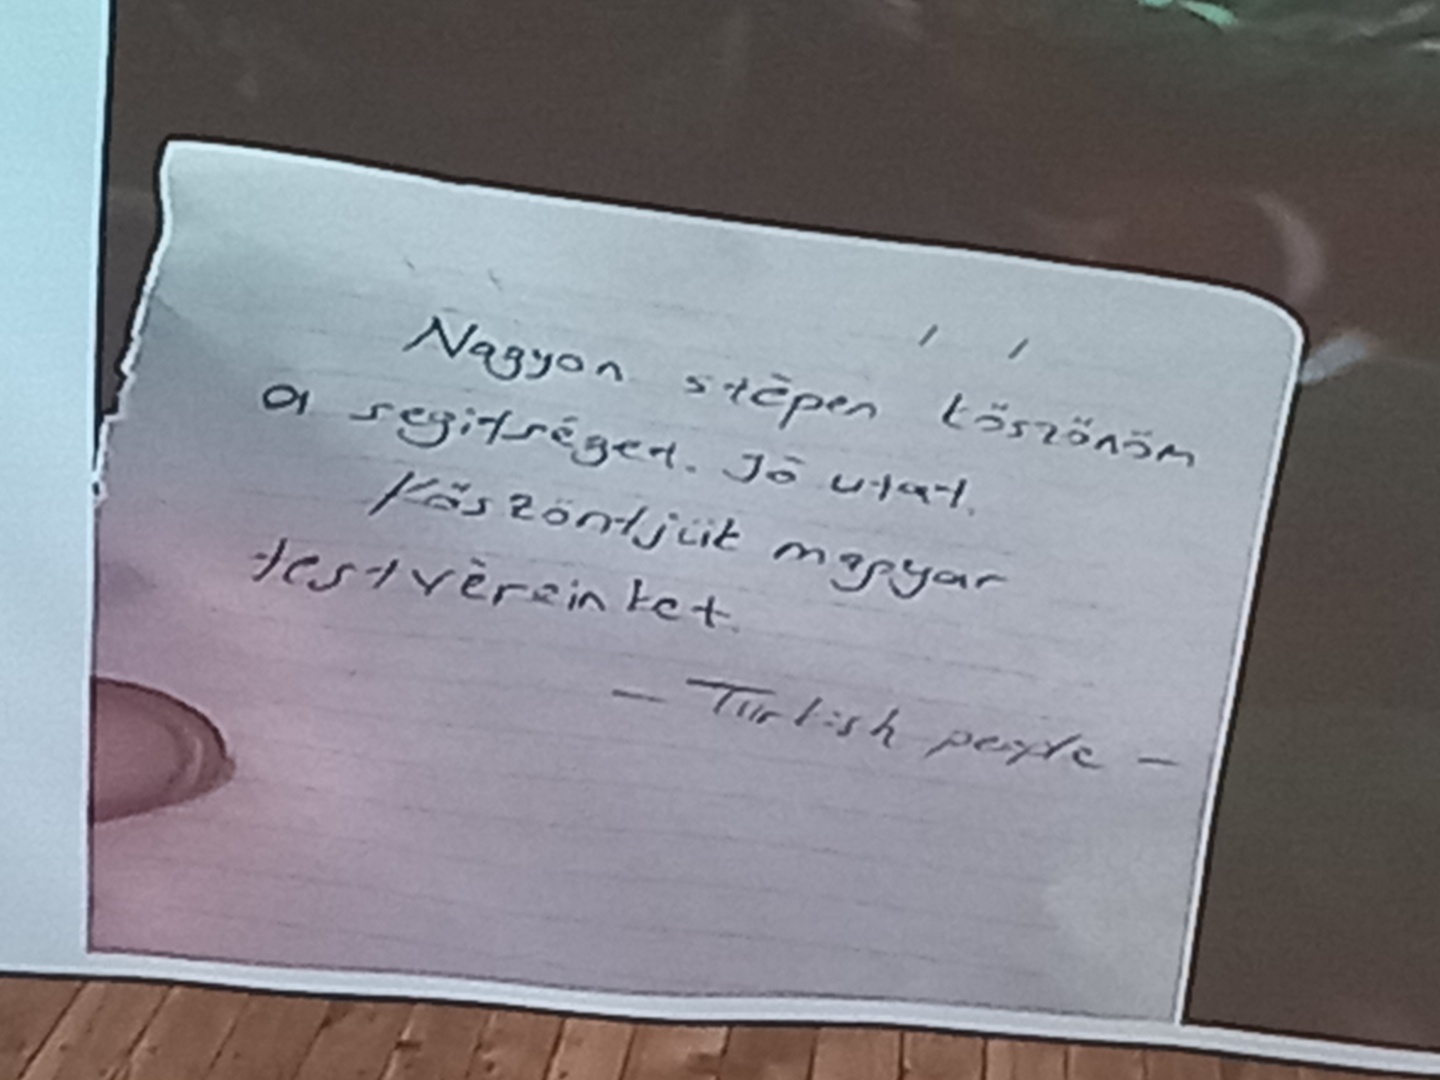 Nagyon stėpen köszönöm
a segitséget. Jó utat.
Köszöntjük magyar
testvéreinket.
- Türkish people -